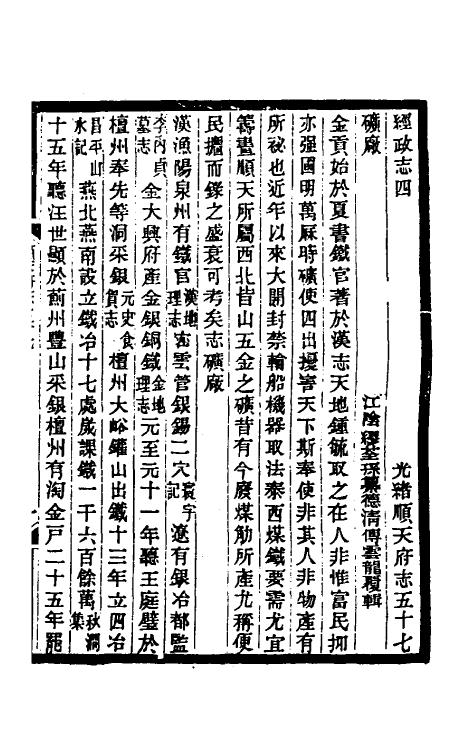 經政志四 光緒順天府志五十七
礦廠 江陰繆荃孫纂德清傅雲龍覆輯
金貢始於夏書鐵官著於漢志天地鍾毓取之在人非惟富民抑
亦强國明萬厤時礦使四出擾害天下斯奉使非其人非物產有
所祕也近年以來大開封禁輪船機器取法泰西煤鐵要需尤宜
籌畫順天所屬西北皆山五金之礦昔有今廢煤觔所產尤稱便
民擔而錄之盛衰可考矣志礦廠
漢漁陽泉州有鐵官漢地理志密雲管銀錫二穴寰宇記遼有銀冶都監
李內貞墓志金大興府產金銀銅鐵金地理志元至元十一年聽王庭璧於
檀州奉先等洞采銀元史食貨志檀州大峪錐山出鐵十三年立四冶
昌平山水記燕北燕南設立鐵冶十七處歲課鐵一千六百餘萬秋澗集
十五年聽汪世顯於薊州豐山采銀檀州有淘金戸二十五年罷